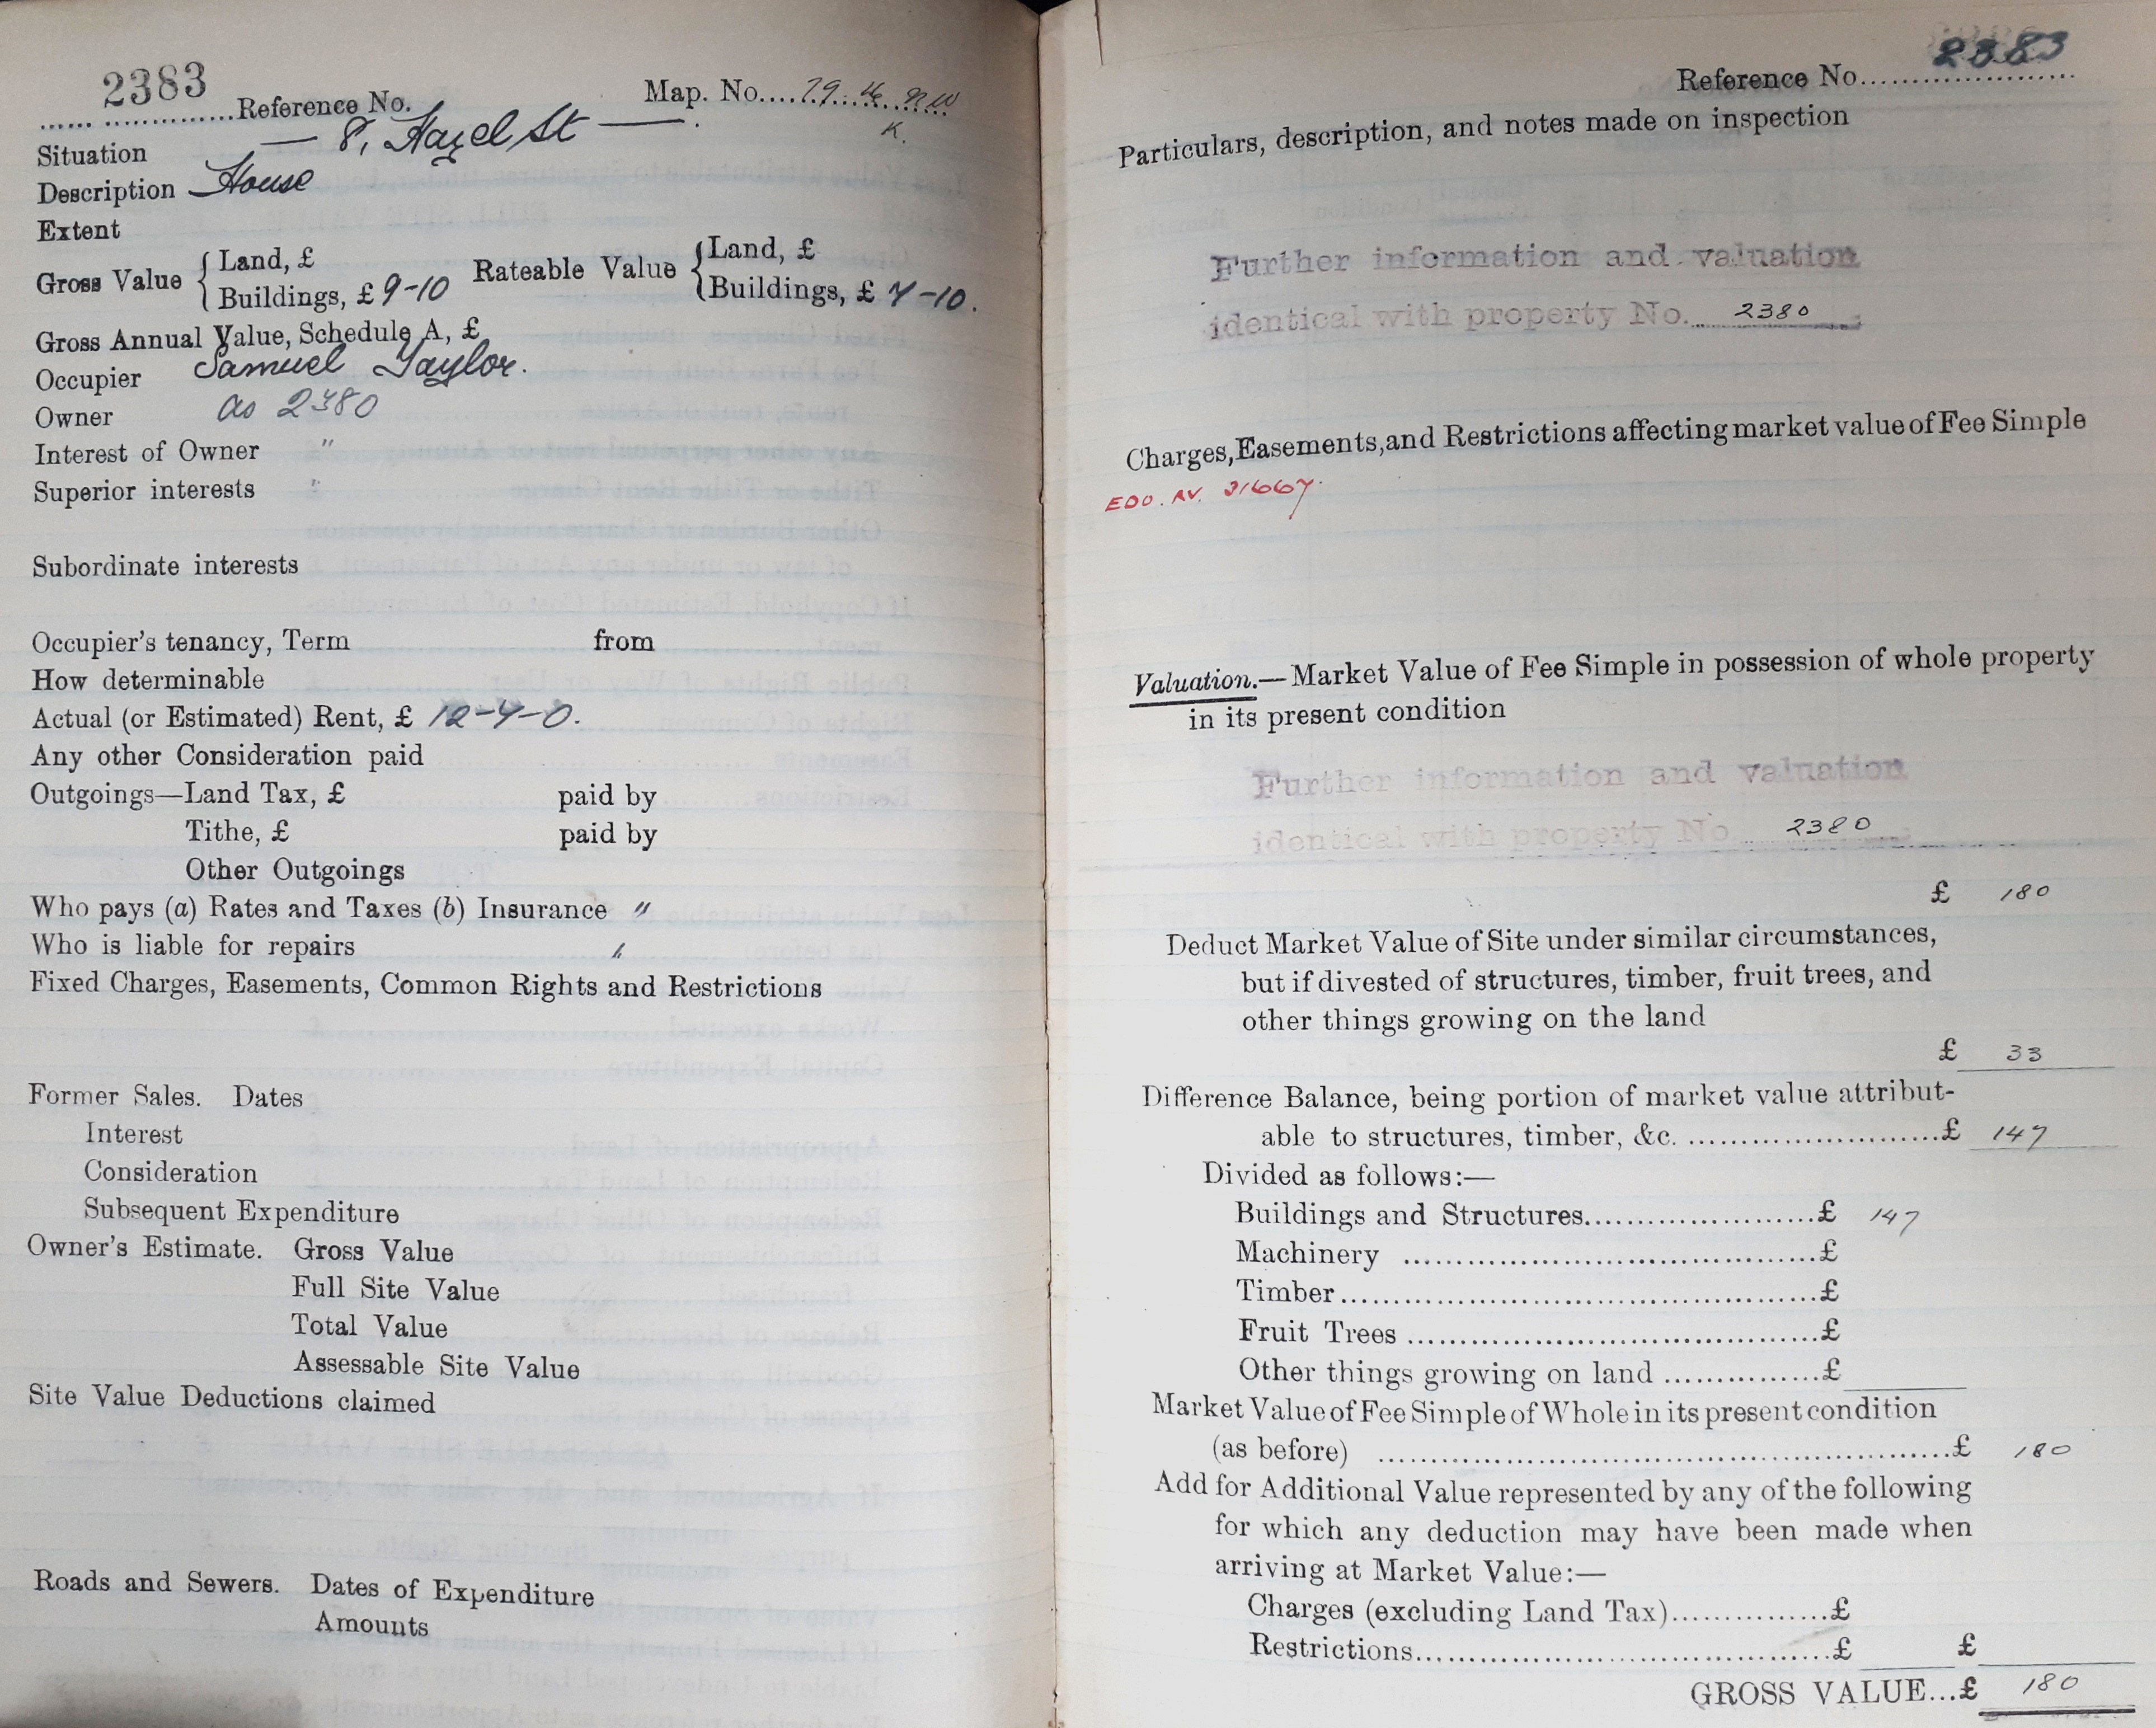 2383
Reference No.
Map. No. 79. 14. NW
K.
Situation — 8, Hazel St —
Description House
Extent
Gross Value { Land, £
Buildings, £ 9-10
Rateable Value { Land, £
Buildings, £ 7-10.
Gross Annual Value, Schedule A, £
Occupier Samuel Taylor.
Owner as 2380
Interest of Owner "
Superior interests "
Subordinate interests
Occupier's tenancy, Term from
How determinable
Actual (or Estimated) Rent, £ 12-7-0.
Any other Consideration paid
Outgoings—Land Tax, £ paid by
Tithe, £ paid by
Other Outgoings
Who pays (a) Rates and Taxes (b) Insurance "
Who is liable for repairs "
Fixed Charges, Easements, Common Rights and Restrictions
Former Sales. Dates
Interest
Consideration
Subsequent Expenditure
Owner's Estimate. Gross Value
Full Site Value
Total Value
Assessable Site Value
Site Value Deductions claimed
Roads and Sewers. Dates of Expenditure
Amounts
Reference No. 2383
Particulars, description, and notes made on inspection
Further information and valuation
identical with property No. 2380
Charges, Easements, and Restrictions affecting market value of Fee Simple
EDO. AV. 31667.
Valuation.—Market Value of Fee Simple in possession of whole property
in its present condition
Further information and valuation
identical with property No. 2380
£ 180
Deduct Market Value of Site under similar circumstances,
but if divested of structures, timber, fruit trees, and
other things growing on the land
£ 33
Difference Balance, being portion of market value attribut-
able to structures, timber, &c. £ 147
Divided as follows:—
Buildings and Structures £ 147
Machinery £
Timber £
Fruit Trees £
Other things growing on land £
Market Value of Fee Simple of Whole in its present condition
(as before) £ 180
Add for Additional Value represented by any of the following
for which any deduction may have been made when
arriving at Market Value:—
Charges (excluding Land Tax) £
Restrictions £ £
GROSS VALUE...£ 180